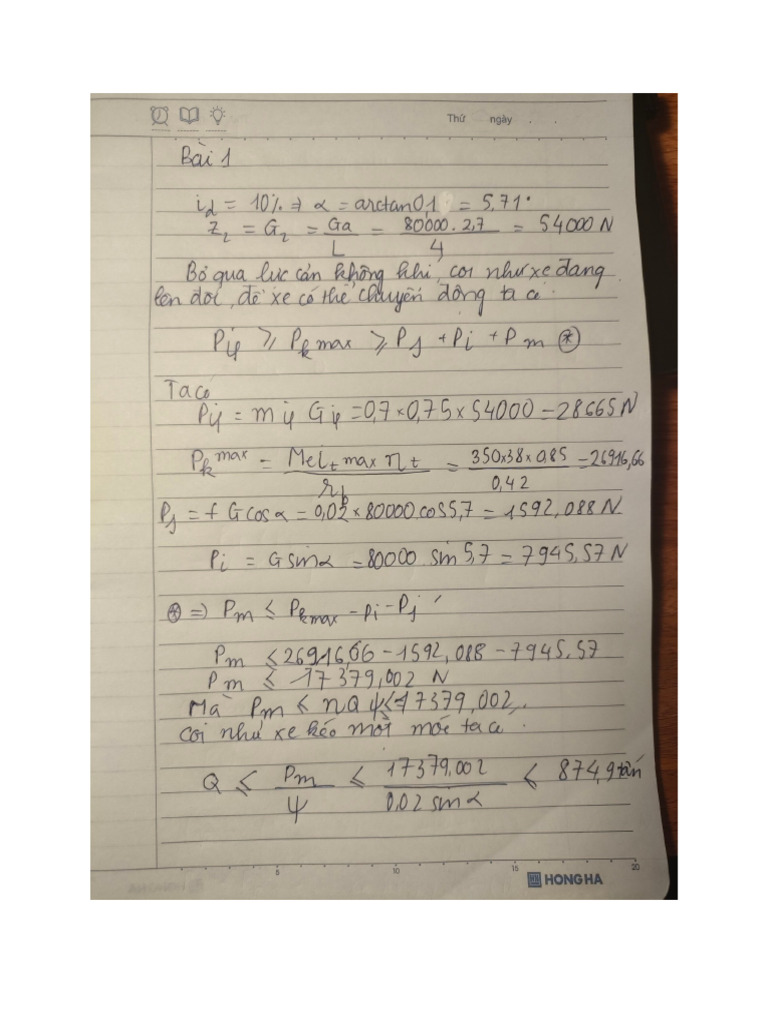 Thứ ngày . .
Bài 1
i_d = 10% ⇒ α = arctan 0,1 = 5,71°
Z₂ = G₂ = Ga/L = 80000.2,7/4 = 54000 N
Bỏ qua lực cản không khí, coi như xe đang
lên dốc, để xe có thể chuyển động ta có.
Pφ ≥ Pk max ≥ Pf + Pi + Pm (*)
Ta có
Pφ = mφ Gφ = 0,7 × 0,75 × 54000 = 28665 N
Pk max = Me i_t max η_t / r_b = 350×38×0,85 / 0,42 = 26916,66
Pf = f G cosα = 0,02 × 80000 cos 5,7 = 1592,088 N
Pi = G sinα = 80000 sin 5,7 = 7945,57 N
(*) ⇒ Pm ≤ Pk max - Pi - Pf
Pm ≤ 26916,66 - 1592,088 - 7945,57
Pm ≤ 17379,002 N
Mà Pm ≤ nQψ ≤ 17379,002
coi như xe kéo một moóc ta có.
Q ≤ Pm/ψ ≤ 17379,002 / 0,02 sinα ≤ 874,9 tấn
5 10 15 20
HONG HA